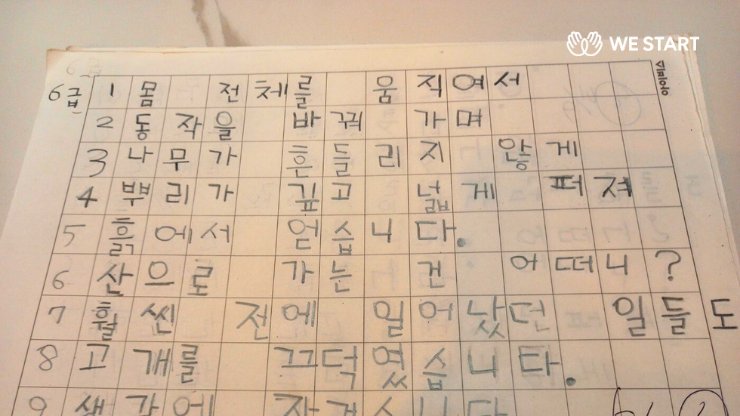 WE START
6급
1 몸 전체를 움직여서
2 동작을 바꿔 가며
3 나무가 흔들리지 않게
4 뿌리가 깊고 넓게 퍼져
5 흙에서 얻습니다.
6 산으로 가는 건 어떠니?
7 훨씬 전에 일어났던 일들도
8 고개를 끄덕였습니다.
9 생각에